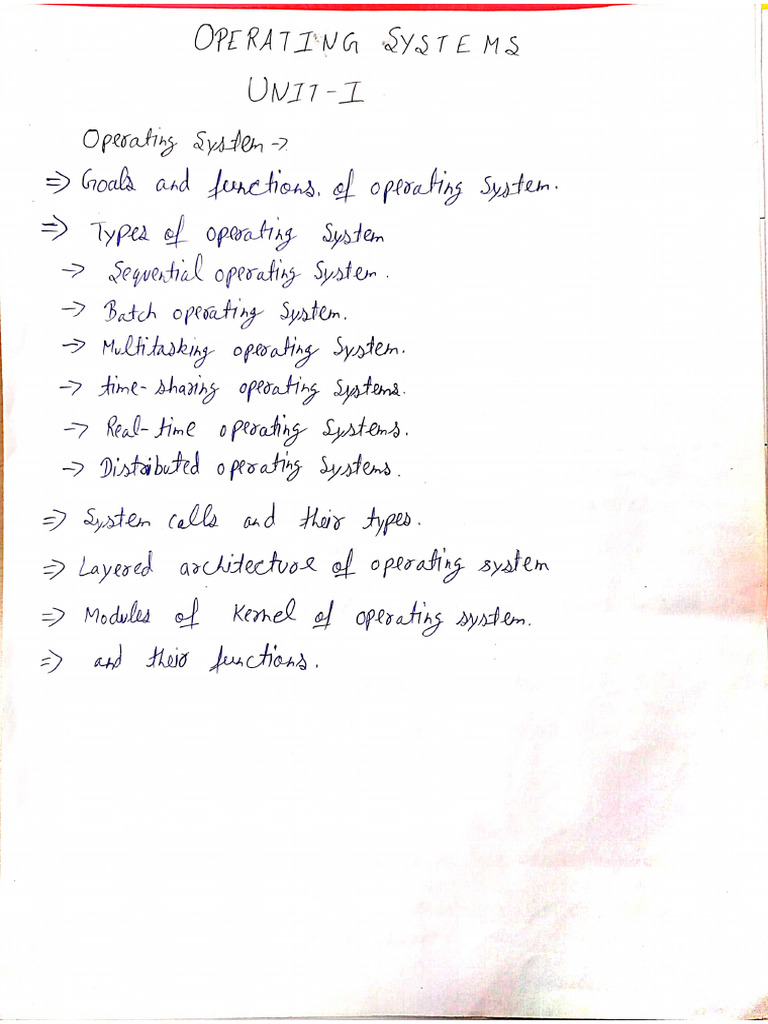 OPERATING SYSTEMS
UNIT-I
Operating System →
⇒ Goals and functions. of operating System.
⇒ Types of operating System
→ Sequential operating System.
→ Batch operating System.
→ Multitasking operating System.
→ time-sharing operating Systems.
→ Real-time operating Systems.
→ Distributed operating Systems.
⇒ System calls and their types.
⇒ Layered architecture of operating system
⇒ Modules of Kernel of operating system.
⇒ and their functions.